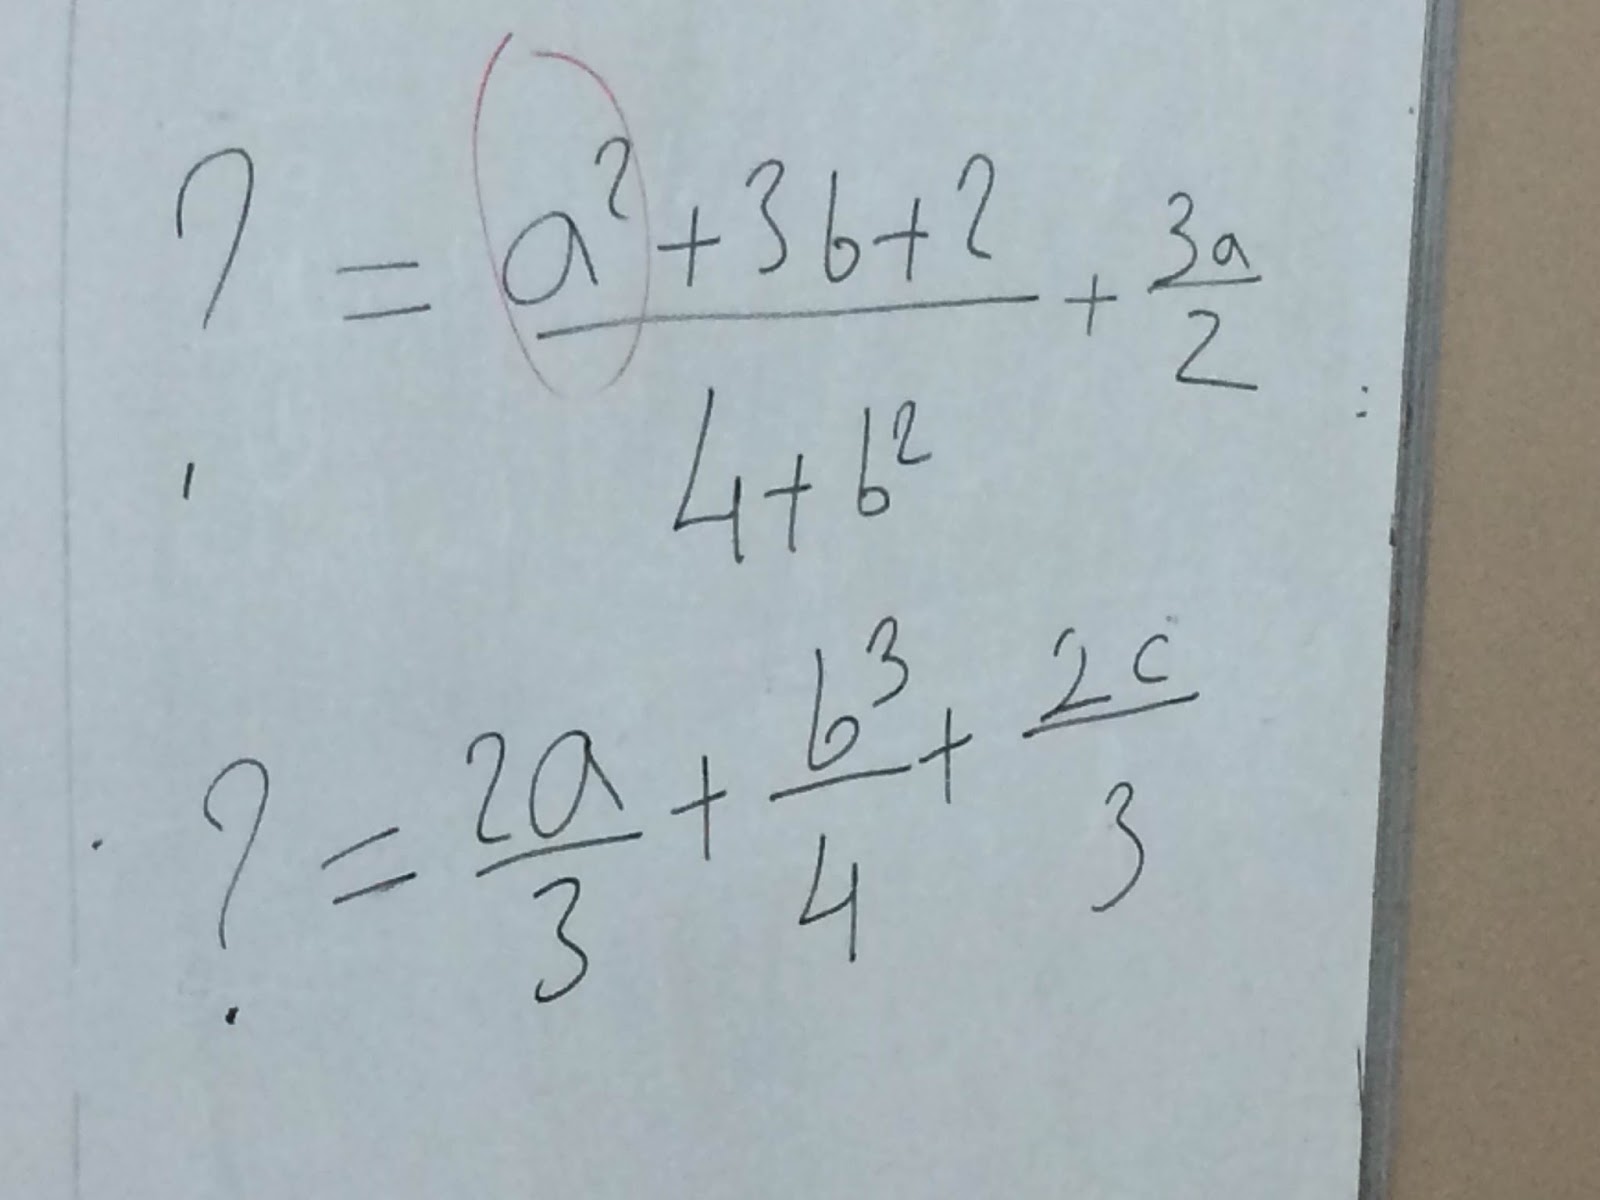 ? = (a² + 3b + 2)/(4 + b²) + 3a/2
? = 2a/3 + b³/4 + 2c/3